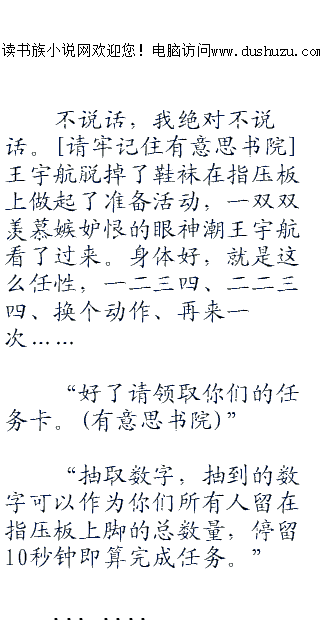 读书族小说网欢迎您！电脑访问www.dushuzu.com
不说话，我绝对不说
话。[请牢记住有意思书院]
王宇航脱掉了鞋袜在指压板
上做起了准备活动，一双双
羡慕嫉妒恨的眼神潮王宇航
看了过来。身体好，就是这
么任性，一二三四、二二三
四、换个动作、再来一
次……
“好了请领取你们的任
务卡。(有意思书院)”
“抽取数字，抽到的数
字可以作为你们所有人留在
指压板上脚的总数量，停留
10秒钟即算完成任务。”